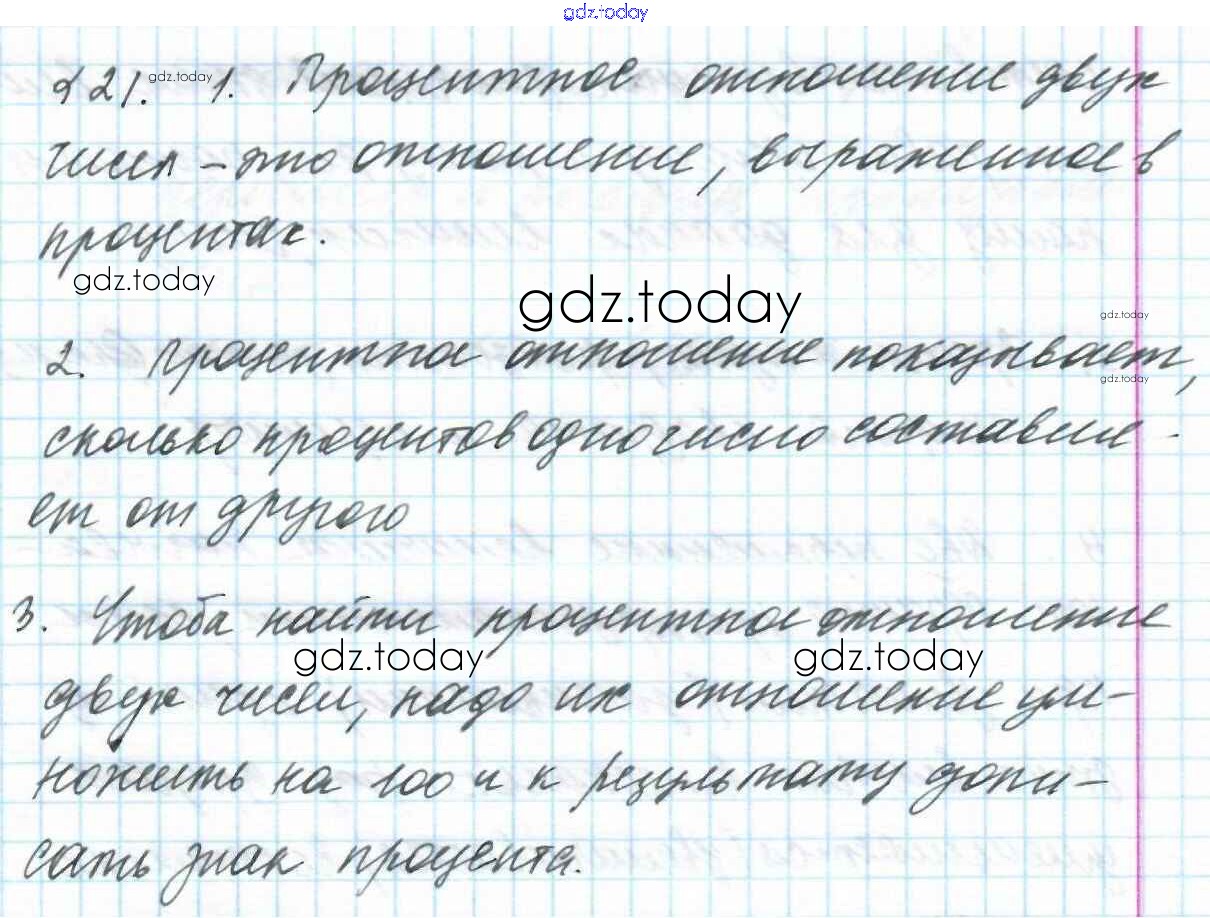 gdz.today
§21. gdz.today 1. Процентное отношение двух
чисел – это отношение, выраженное в
процентах.
gdz.today
gdz.today
gdz.today
2. Процентное отношение показывает,
gdz.today
сколько процентов одно число составля-
ет от другого
3. Чтобы найти процентное отношение
gdz.today gdz.today
двух чисел, надо их отношение ум-
ножить на 100 и к результату допи-
сать знак процента.